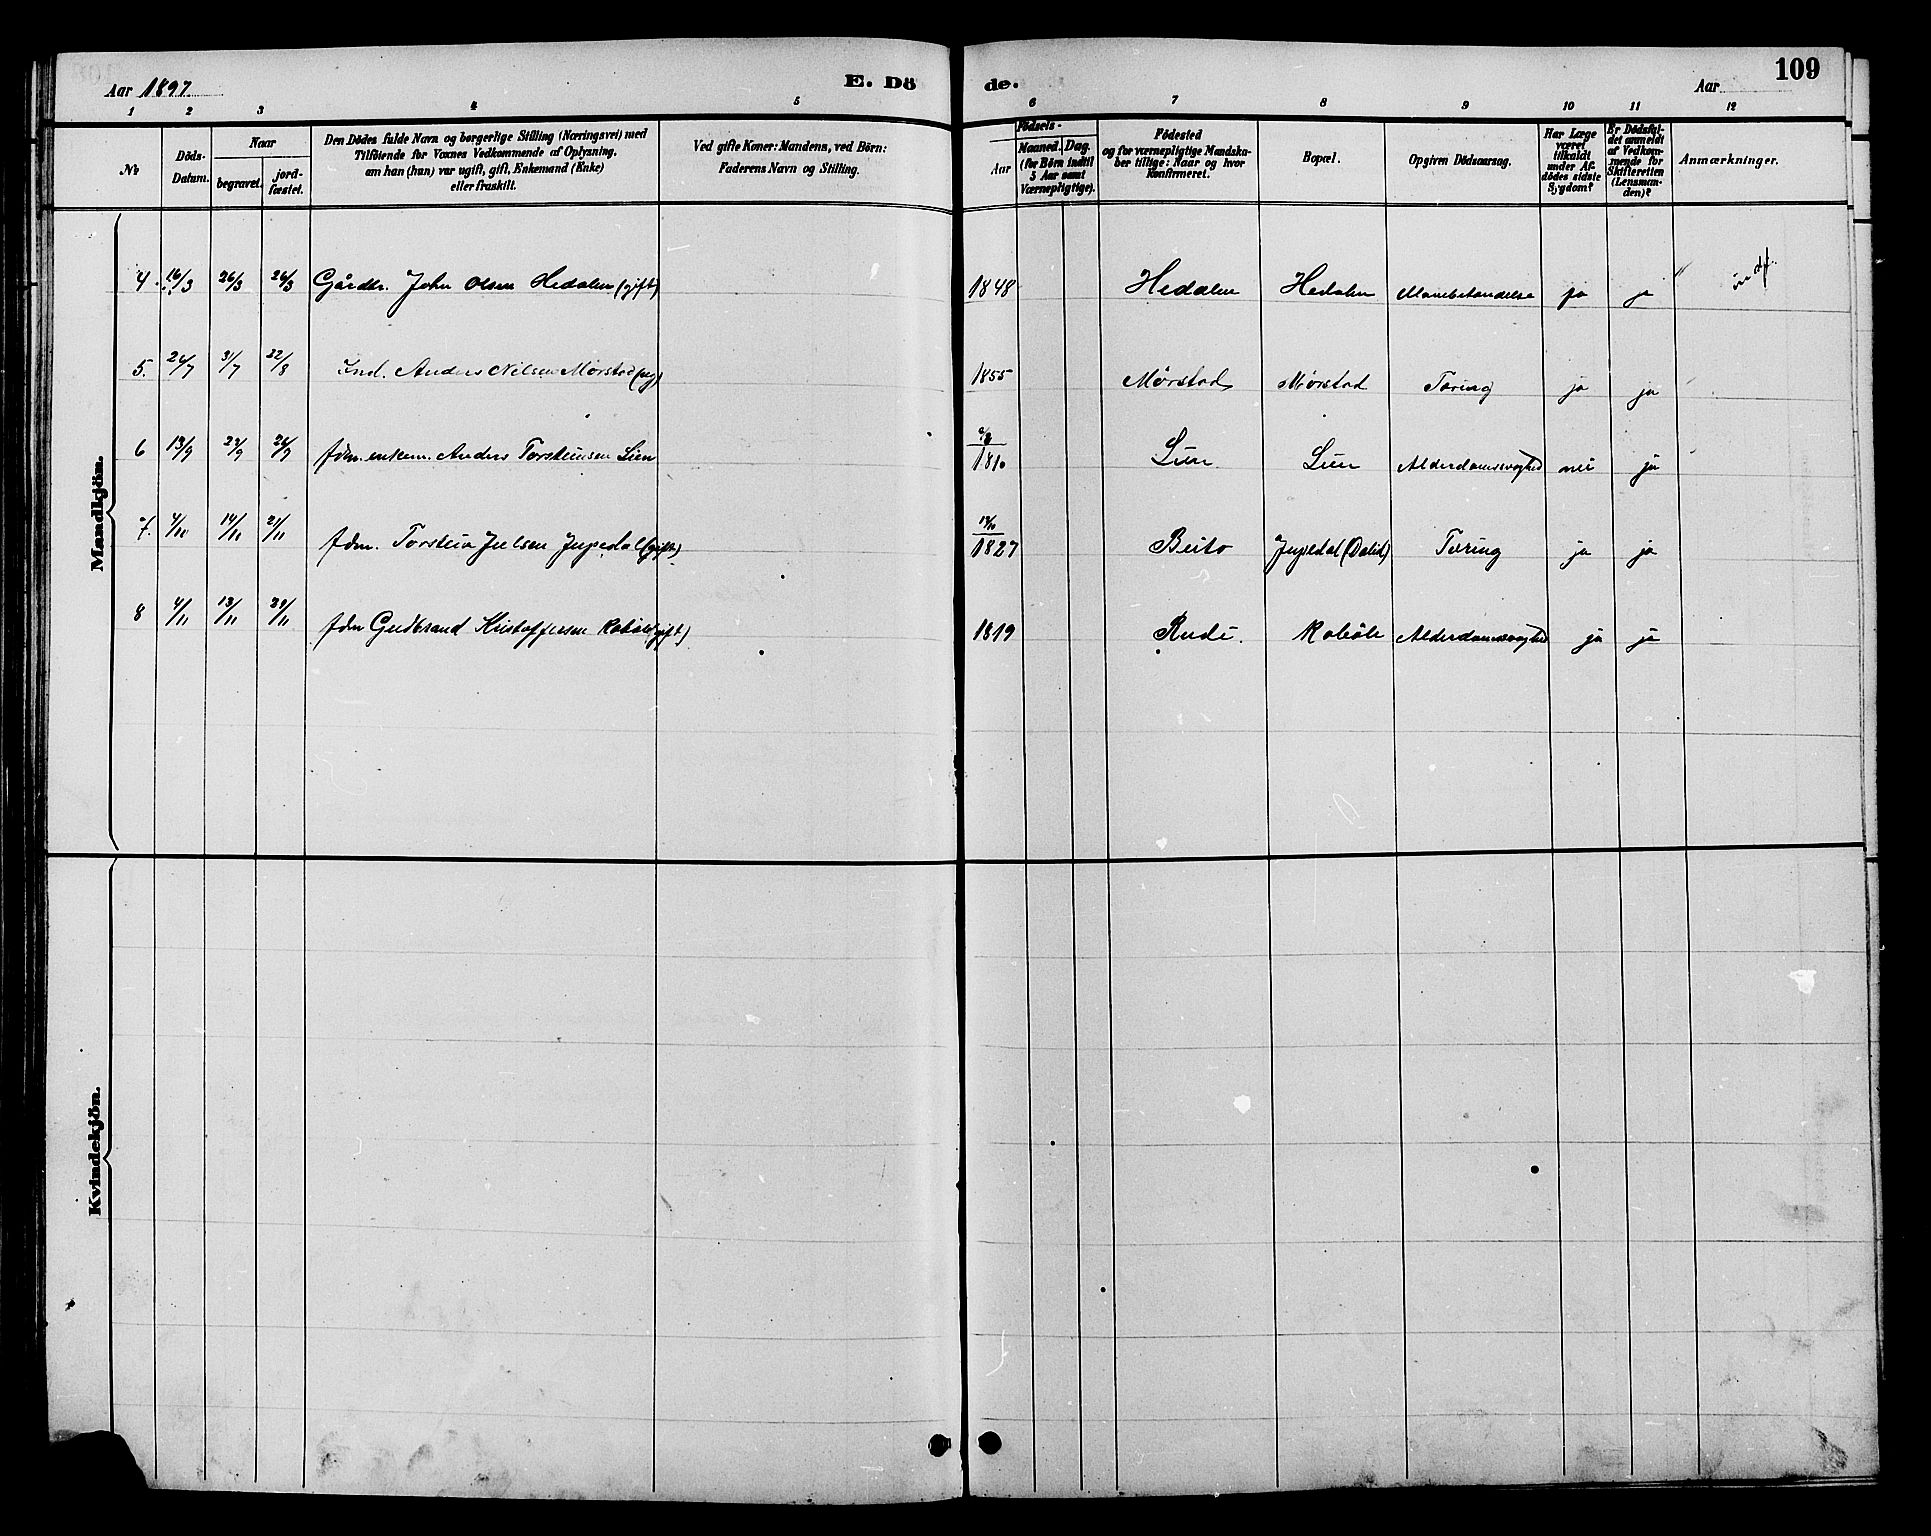 109
Aar 1897.
E. Dö
de.
Aar
1 2 3 4 5 6 7 8 9 10 11 12
No
Döds-
Datum.
Naar
begravet.
jord-
fæstet.
Den Dödes fulde Navn og borgerlige Stilling (Næringsvei) med
Tilföiende for Voxnes Vedkommende af Oplysning,
om han (hun) var ugift, gift, Enkemand (Enke)
eller fraskilt.
Ved gifte Koner: Mandens, ved Börn:
Faderens Navn og Stilling.
Födsels-
Aar
Maaned. Dag.
(for Börn indtil
5 Aar samt
Værnepligtige).
Födested
og for værnepligtige Mandska-
ber tillige: Naar og hvor
konfirmeret.
Bopæl.
Opgiven Dödsaarsag.
Har Læge
været
tilkaldt
under Af-
dödes sidste
Sygdom?
Er Dödsfal-
det anmeldt
af Vedkom-
mende for
Skifteretten
(Lensman-
den)?
Anmærkninger.
Mandkjön.
4. 16/3 26/3 26/3 Gårdbr. John Olsen Hedalen (gift) 1848 Hedalen Hedalen ja ja
5. 24/7 31/7 22/8 Ind. Anders Nilsen Mørstad (ug) 1855 Mørstad Mørstad Tæring ja ja
6 13/9 22/9 26/9 fdm. enkem. Anders Torsteinsen Lien 1810 Lien Lien Alderdomssvaghed nei ja
7. 4/10 14/11 21/11 fdm. Torstein Juelsen (gift) 1827 Beito Tæring ja ja
8 4/11 13/11 21/11 fdm Gudbrand Kristoffersen Robøle (gift) 1819 Rudi. Robøle Alderdomssvaghed ja ja
Kvindekjön.